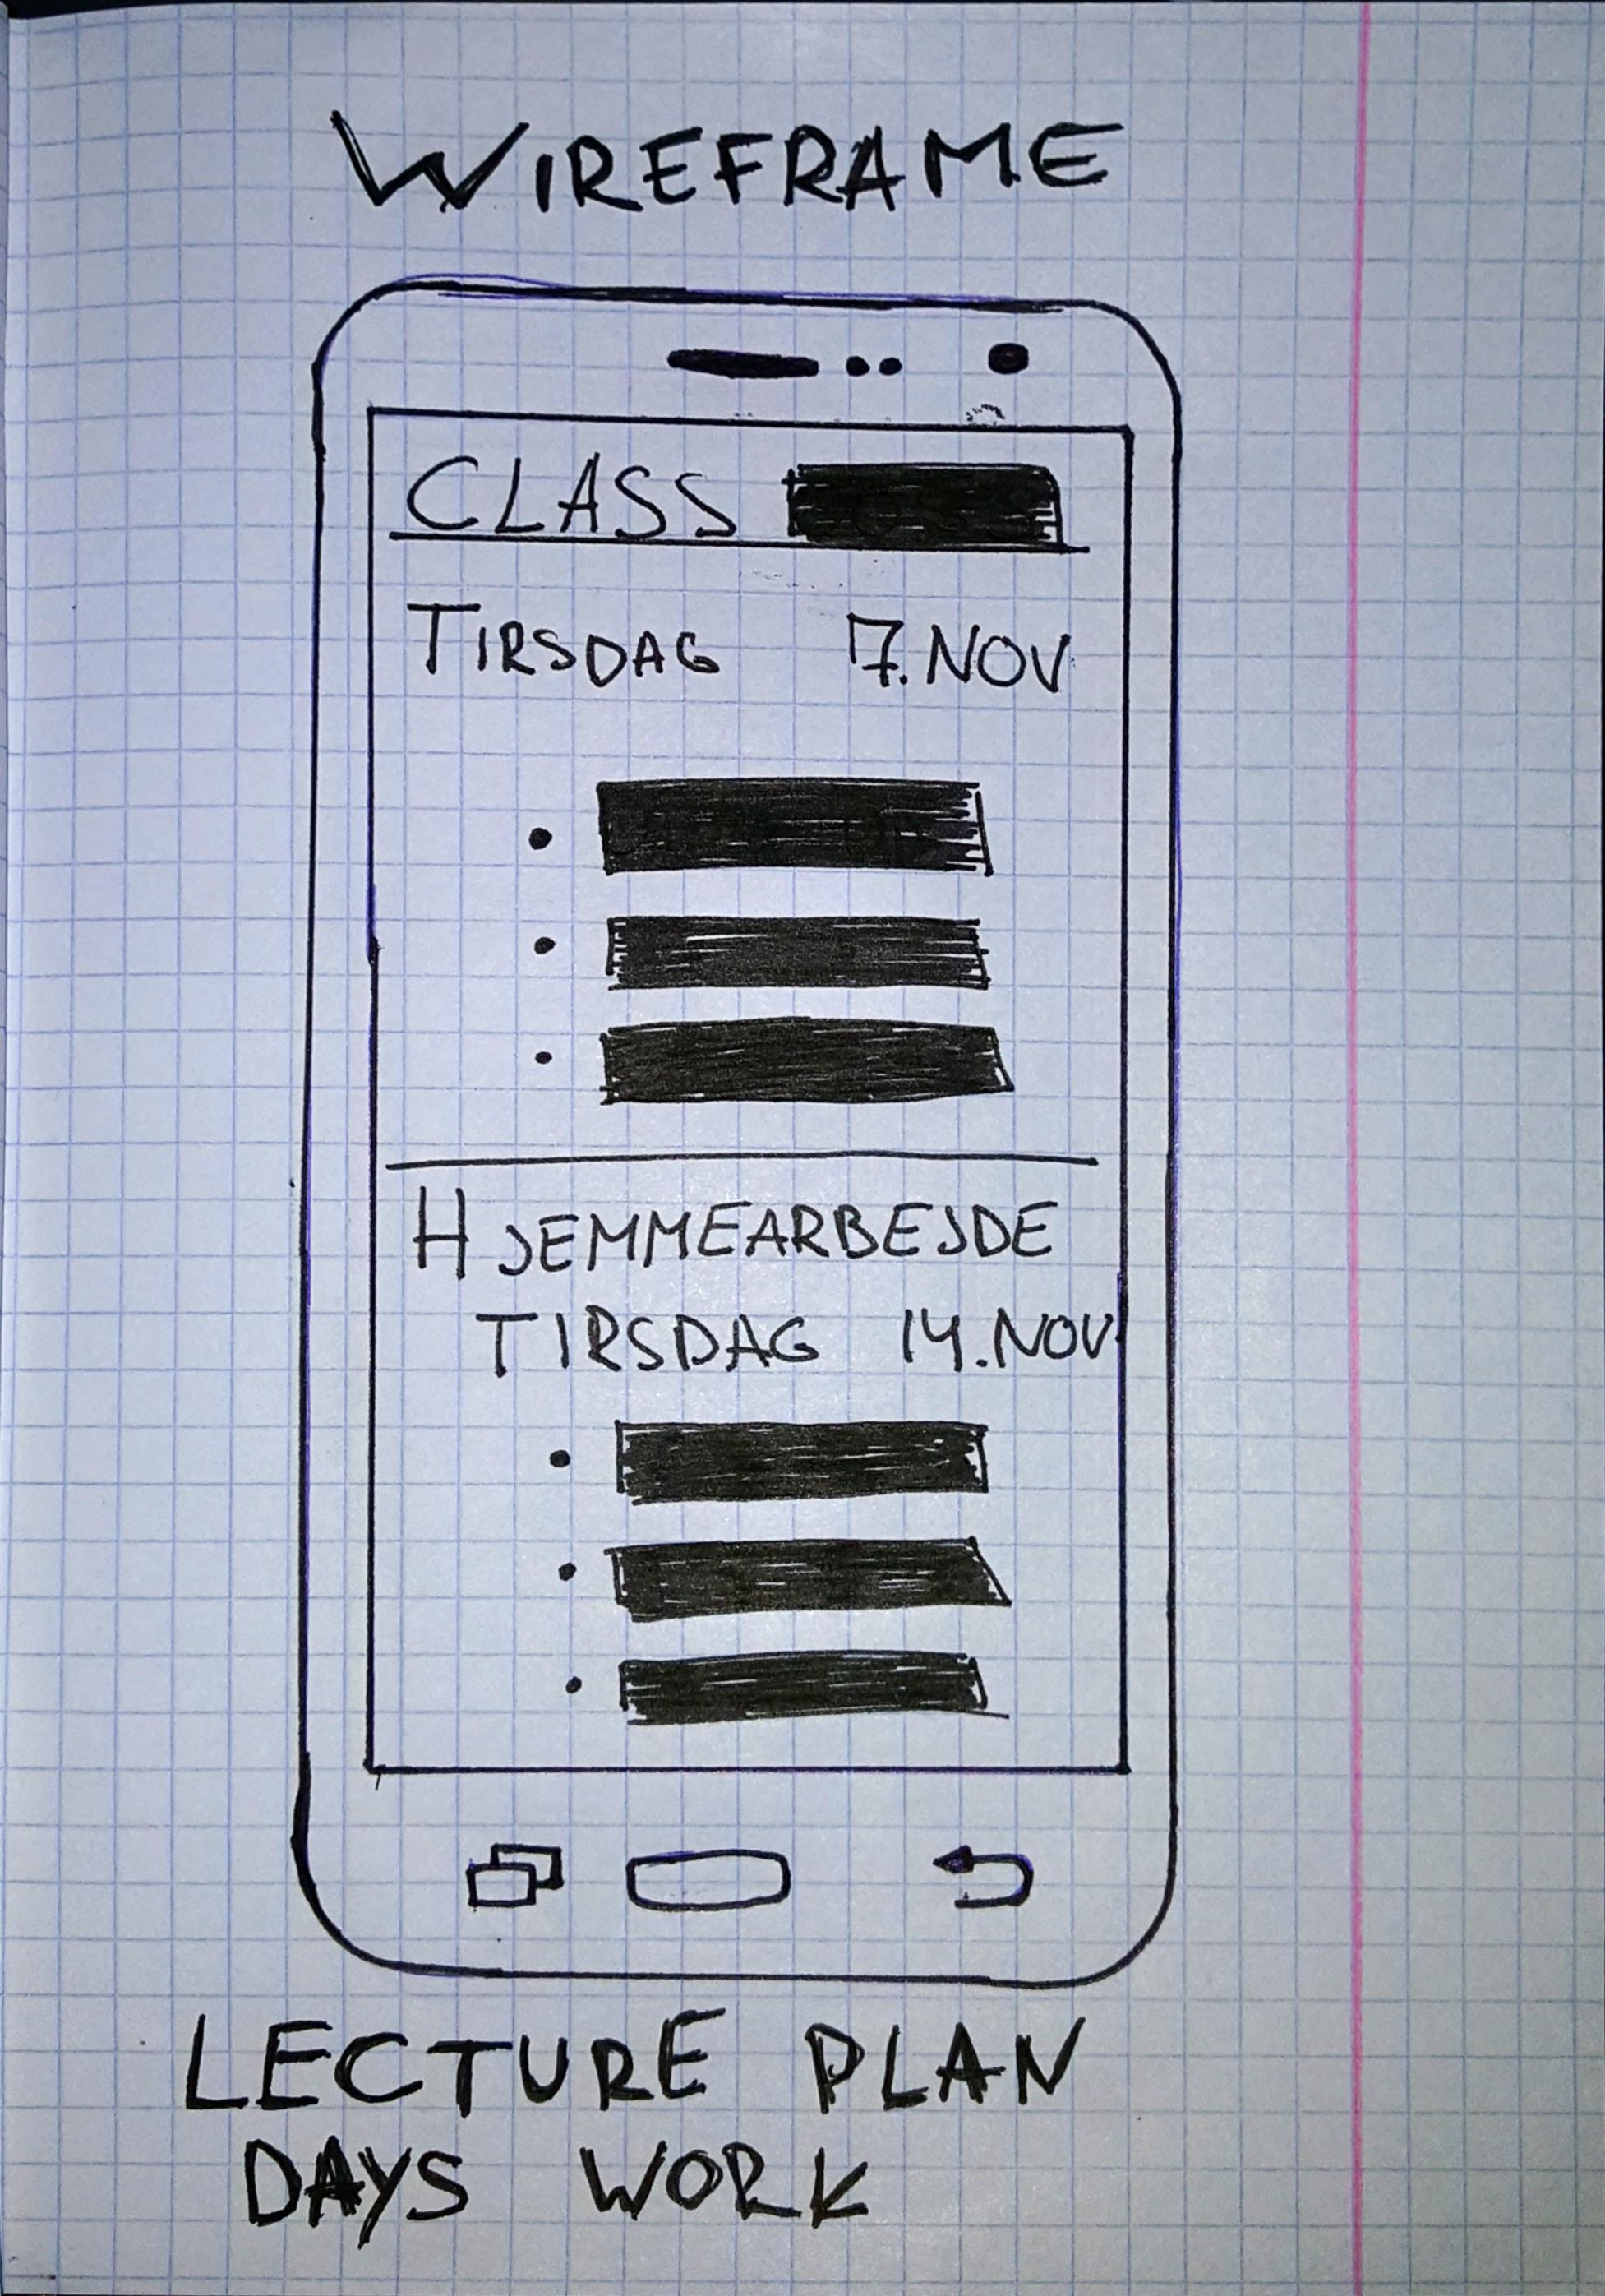 WIREFRAME
CLASS
TIRSDAG 7.NOV
HJEMMEARBEJDE
TIRSDAG 14.NOV
LECTURE PLAN
DAYS WORK